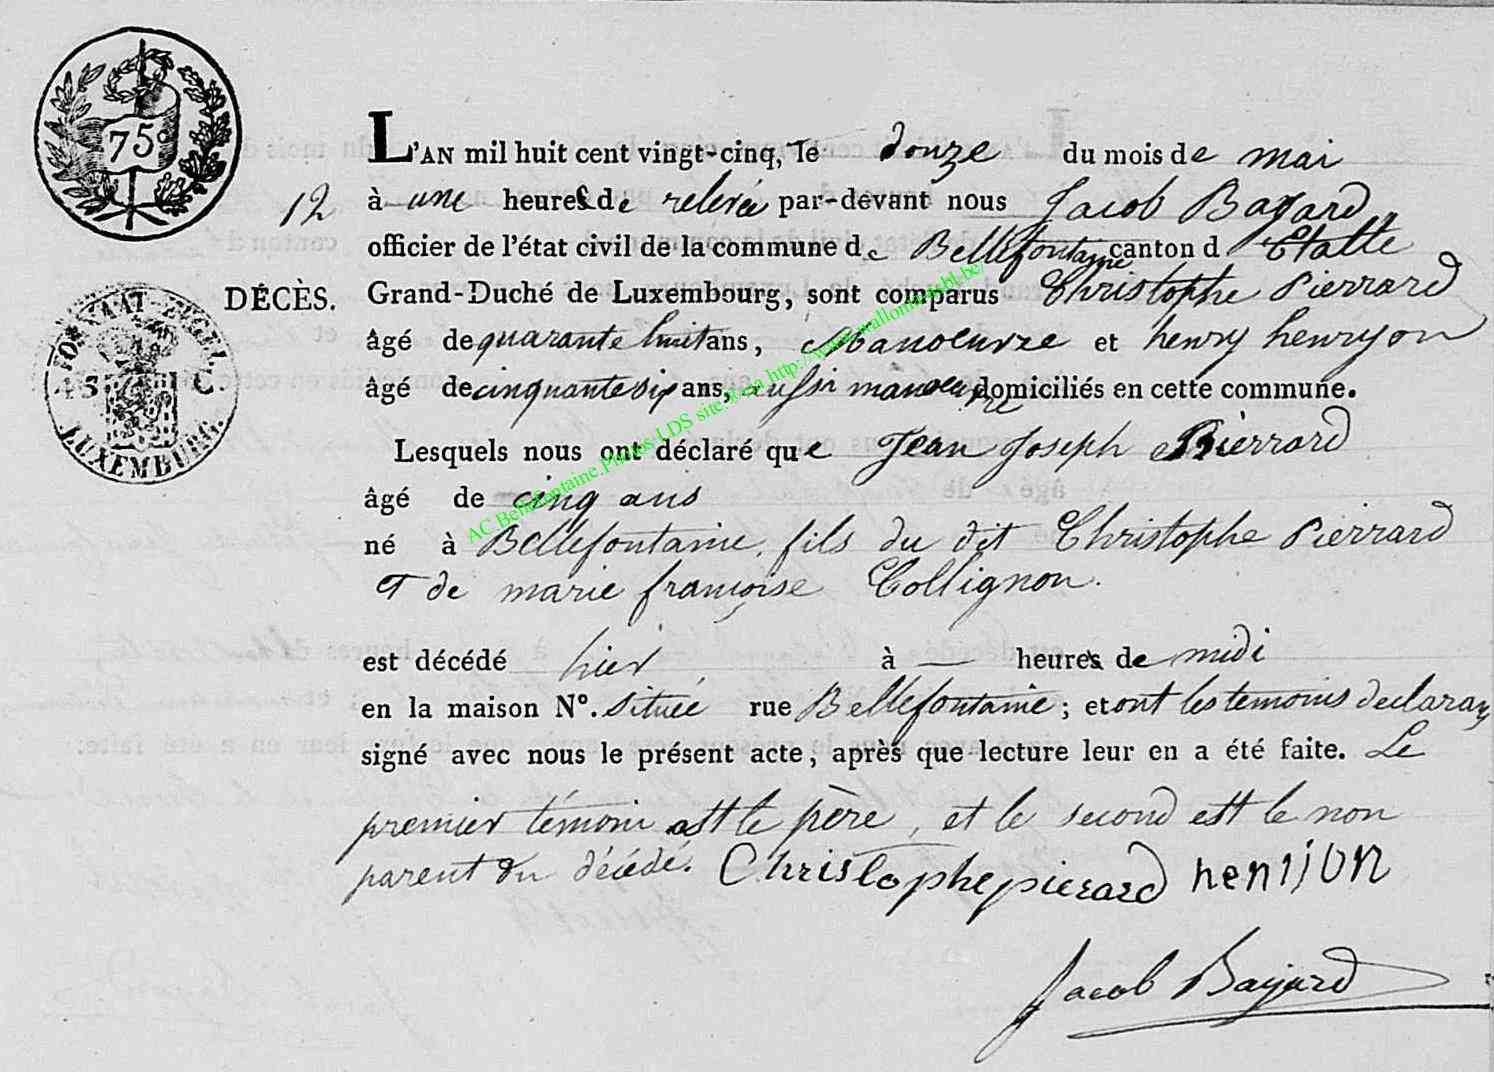 75c
L'AN mil huit cent vingt-cinq, le douze du mois de mai
12
à une heures de relevée par-devant nous Jacob Bayard
officier de l'état civil de la commune de Bellefontaine canton d'Etalle
DÉCÈS.
Grand-Duché de Luxembourg, sont comparus Christophe Pierrard
âgé de quarante huit ans, Manoeuvre et henry henryon
âgé de cinquante six ans, aussi manoeuvre domiciliés en cette commune.
FORMAAT ZEGEL
45 C.
LUXEMBURG.
Lesquels nous ont déclaré que Jean Joseph Pierrard
âgé de cinq ans
né à Bellefontaine, fils du dit Christophe Pierrard
& de marie françoise Collignon.
est décédé hier à — heures de midi
en la maison N°. située rue Bellefontaine ; et ont les temoins declarans
signé avec nous le présent acte, après que lecture leur en a été faite. Le
premier témoin est le père, et le second est le non
parent du décédé. Christophe pierard henrijon
Jacob Bayard
AC Bellefontaine.Photos LDS site